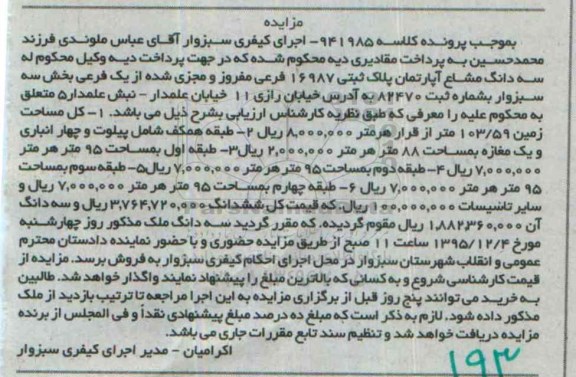 مزایده
بموجب پرونده کلاسه ۹۴۱۹۸۵- اجرای کیفری سبزوار آقای عباس ملوندی فرزند
محمدحسین به پرداخت مقادیری دیه محکوم شده که در جهت پرداخت دیه وکیل محکوم له
سه دانگ مشاع آپارتمان پلاک ثبتی ۱۶۹۸۷ فرعی مفروز و مجزی شده از یک فرعی بخش سه
سبزوار بشماره ثبت ۸۲۴۷۰ به آدرس خیابان رازی ۱۱ خیابان علمدار - نبش علمدار۵ متعلق
به محکوم علیه را معرفی که طبق نظریه کارشناس ارزیابی بشرح ذیل می باشد. ۱- کل مساحت
زمین ۱۰۳/۵۹ متر از قرار هرمتر ۸,۰۰۰,۰۰۰ ریال ۲- طبقه همکف شامل پیلوت و چهار انباری
و یک مغازه بمساحت ۸۸ متر هر متر ۲,۰۰۰,۰۰۰ ریال۳- طبقه اول بمساحت ۹۵ متر هر متر
۷,۰۰۰,۰۰۰ ریال ۴- طبقه دوم بمساحت ۹۵ متر هر متر ۷,۰۰۰,۰۰۰ ریال۵- طبقه سوم بمساحت
۹۵ متر هر متر ۷,۰۰۰,۰۰۰ ریال ۶- طبقه چهارم بمساحت ۹۵ متر هر متر ۷,۰۰۰,۰۰۰ ریال و
سایر تاسیسات ۱۰۰,۰۰۰,۰۰۰ ریال، که قیمت کل ششدانگ ۳,۷۶۴,۷۲۰,۰۰۰ ریال و سه دانگ
آن ۱,۸۸۲,۳۶۰,۰۰۰ ریال مقوم گردیده، که مقرر گردید سه دانگ ملک مذکور روز چهارشنبه
مورخ ۱۳۹۵/۱۲/۴ ساعت ۱۱ صبح از طریق مزایده حضوری و با حضور نماینده دادستان محترم
عمومی و انقلاب شهرستان سبزوار در محل اجرای احکام کیفری سبزوار به فروش برسد. مزایده از
قیمت کارشناسی شروع و به کسانی که بالاترین مبلغ را پیشنهاد نمایند واگذار خواهد شد. طالبین
به خرید می توانند پنج روز قبل از برگزاری مزایده به این اجرا مراجعه تا ترتیب بازدید از ملک
مذکور داده شود. لازم به ذکر است که مبلغ ده درصد مبلغ پیشنهادی نقداً و فی المجلس از برنده
مزایده دریافت خواهد شد و تنظیم سند تابع مقررات جاری می باشد.
اکرامیان - مدیر اجرای کیفری سبزوار
۱۹۳